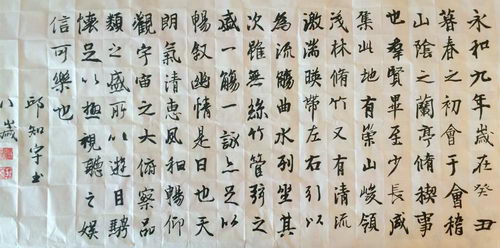 永和九年歲在癸丑
暮春之初會于會稽
山陰之蘭亭脩稧事
也羣賢畢至少長咸
集此地有崇山峻領
茂林脩竹又有清流
激湍暎帶左右引以
為流觴曲水列坐其
次雖無絲竹管弦之
盛一觴一詠亦足以
暢叙幽情是日也天
朗氣清惠風和暢仰
觀宇宙之大俯察品
類之盛所以遊目騁
懷足以極視聽之娛
信可樂也
邱知宇書
八歲